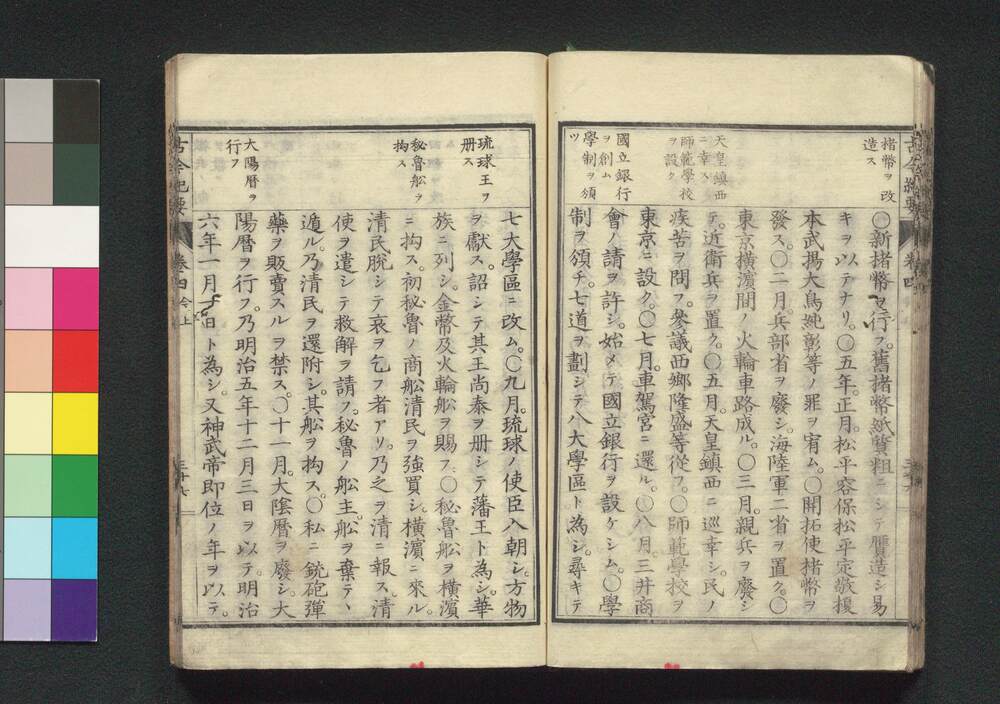 楮幣ヲ改
造ス
天皇鎮西
ニ幸ス
師範學校
ヲ設ク
國立銀行
ヲ創ム
學制ヲ頒
ツ
〇新楮幣ヲ行フ。舊楮幣紙質粗ニシテ贋造シ易
キヲ以テナリ。〇五年。正月。松平容保松平定敬榎
本武揚大鳥純彰等ノ罪ヲ宥ム。〇開拓使楮幣ヲ
發ス。〇二月。兵部省ヲ廢シ。海陸軍二省ヲ置ク。〇
東京橫濵間ノ火輪車路成ル。〇三月。親兵ヲ廢シ
テ。近衛兵ヲ置ク。〇五月。天皇鎮西ニ巡幸シ。民ノ
疾苦ヲ問フ。參議西鄉隆盛等從フ。〇師範學校ヲ
東京ニ設ク。〇七月。車駕宮ニ還ル。〇八月。三井商
會ノ請ヲ許シ。始メテ國立銀行ヲ設ケシム。〇學
制ヲ頒チ。七道ヲ劃シテ八大學區ト為シ。尋キテ
琉球王ヲ
册ス
秘魯舩ヲ
拘ス
大陽曆ヲ
行フ
七大學區ニ改ム。〇九月。琉球ノ使臣入朝シ。方物
ヲ獻ス。詔シテ其王尚泰ヲ册シテ藩王ト為シ。華
族ニ列シ。金幣及火輪舩ヲ賜フ。〇秘魯舩ヲ橫濵
ニ拘ス。初秘魯ノ商舩清民ヲ強買シ。橫濵ニ來ル。
清民脫シテ哀ヲ乞フ者アリ。乃之ヲ清ニ報ス。清
使ヲ遣シテ救解ヲ請フ。秘魯ノ舩主舩ヲ棄テ丶
遁ル。乃清民ヲ還附シ。其舩ヲ拘ス。〇私ニ銃砲彈
藥ヲ販賣スルヲ禁ス。〇十一月。大陰曆ヲ廢シ。大
陽曆ヲ行フ。乃明治五年十二月三日ヲ以テ。明治
六年一月一日ト為シ。又神武帝即位ノ年ヲ以テ。
古今紀要
卷四